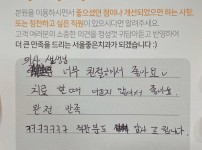 본원을 이용하시면서 좋으셨던 점이나 개선되었으면 하는 사항,
또는 칭찬하고 싶은 직원이 있으시다면 알려주세요.
고객 여러분의 소중한 의견을 정성껏 귀담아듣고 반영하여
더 큰 만족을 드리는 서울좋은치과가 되겠습니다 :)
의사 선생님
너무 친절하셔서 좋아요♥
치료 할 때 아프지 않아서 좋아요.
완전 만족
ㅋㅋㅋㅋㅋㅋㅋ